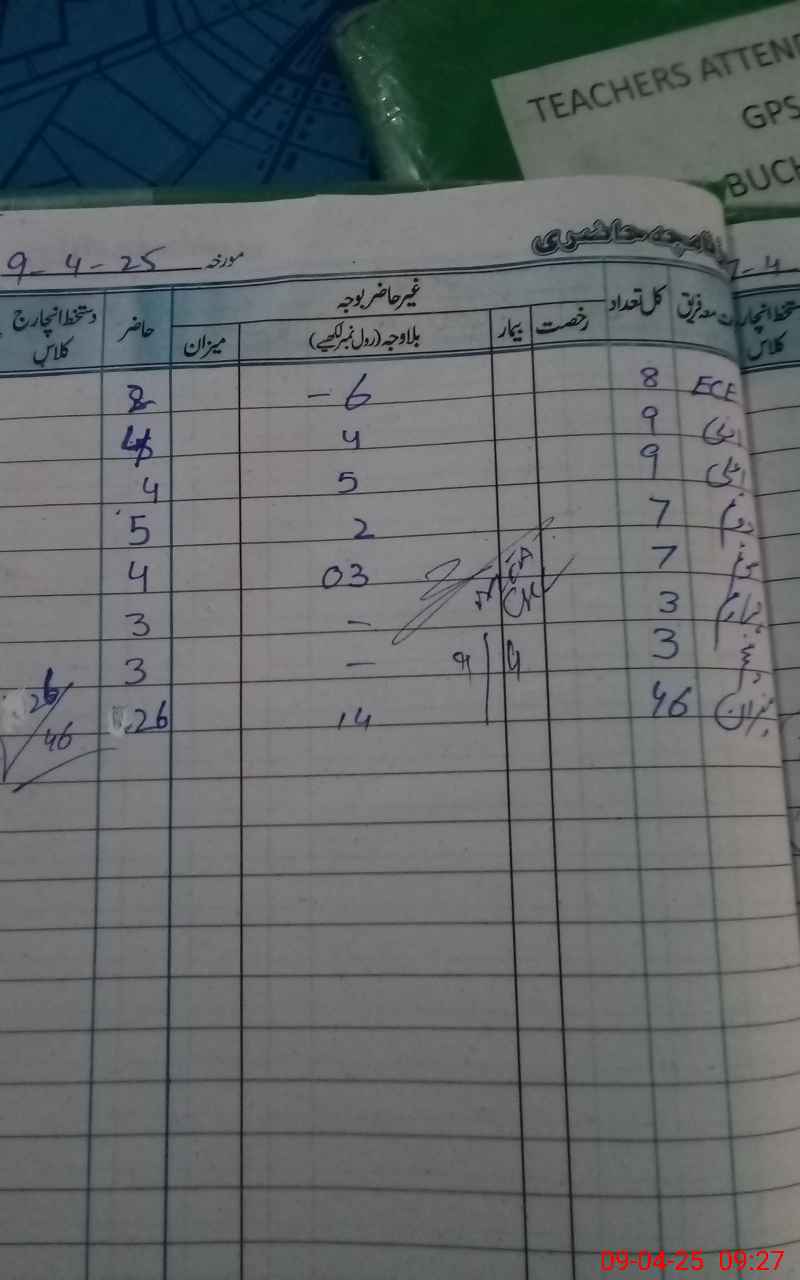 TEACHERS ATTEN
GPS
BUCH
حاضری
مورخہ 9-4-25
معہ فریق کل تعداد غیر حاضر بوجہ حاضر دستخط انچارج کلاس
رخصت بیمار بلاوجہ (رول نمبر لکھیے) میزان
ECE 8 6 - 2
9 4
9 5 4
7 2 5
7 03 4
3 - 3
3 - 3
میزان 46 14 26
26
46
دستخط انچار
کلاس
09-04-25 09:27